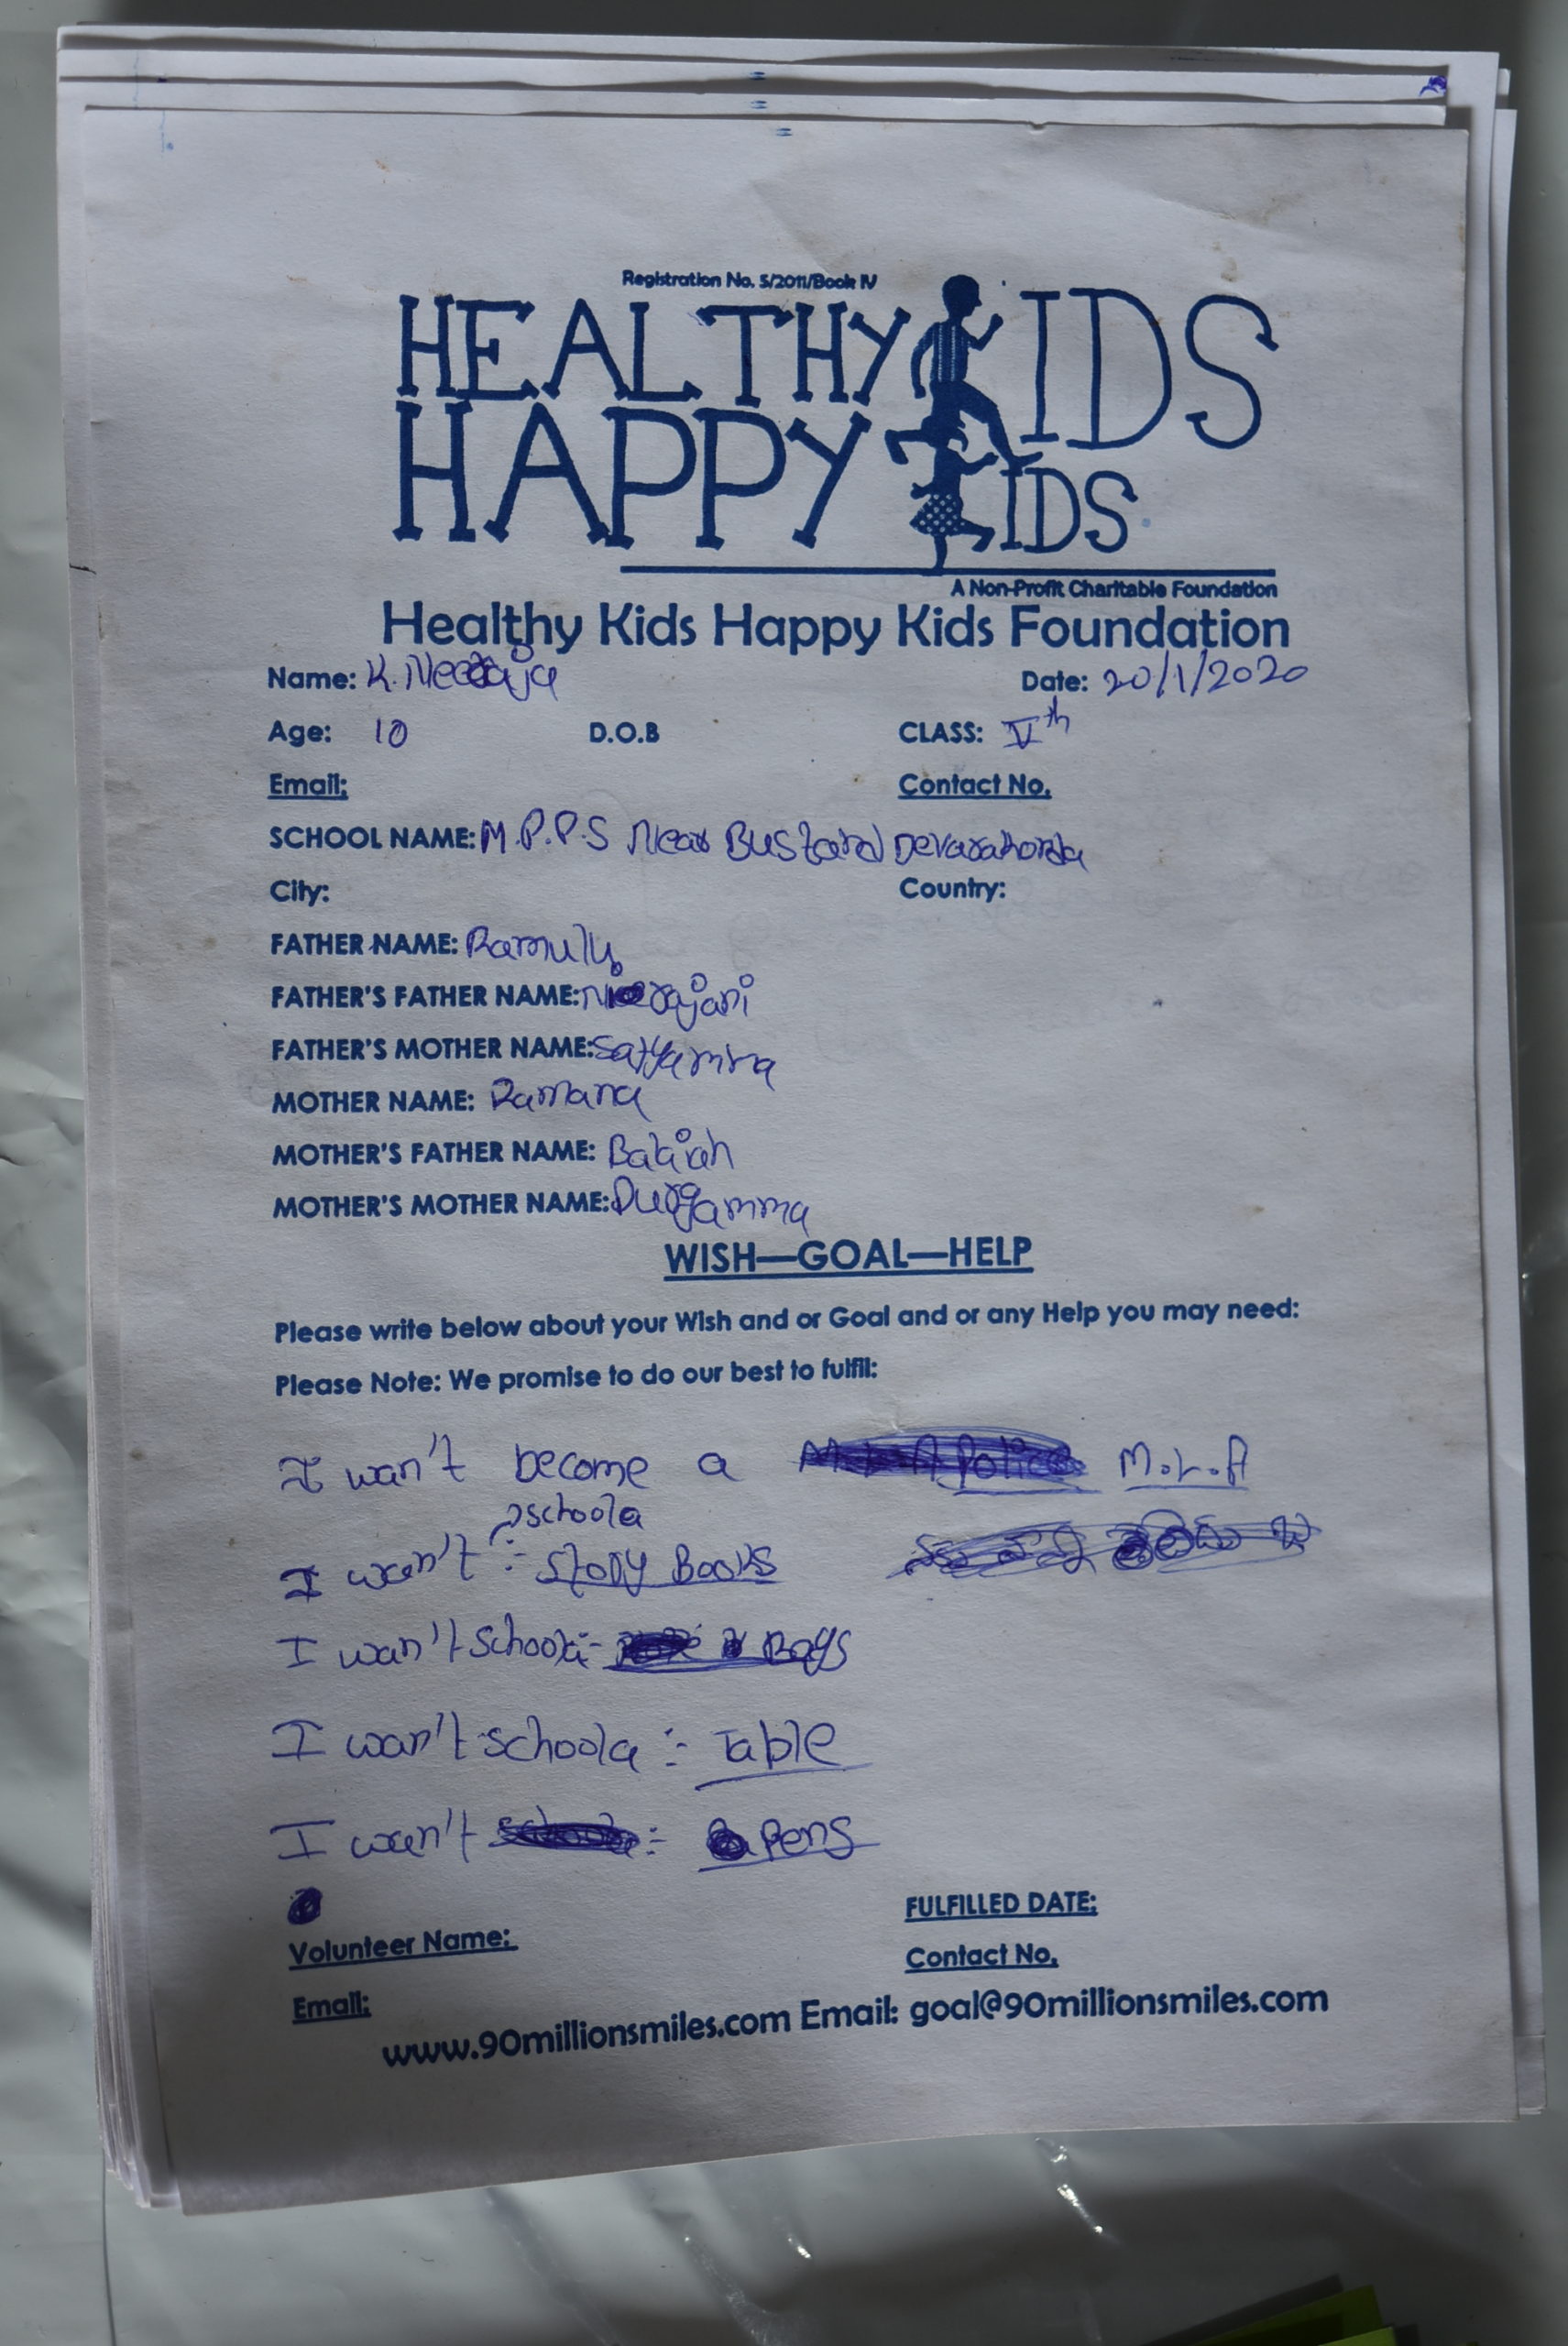 Registration No. 5/2011/Book IV
HEALTHY KIDS
HAPPY KIDS
A Non-Profit Charitable Foundation
Healthy Kids Happy Kids Foundation
Name: K. Neeraja Date: 20/1/2020
Age: 10 D.O.B CLASS: Vth
Email: Contact No.
SCHOOL NAME: M.P.P.S Near Bustand Devarakonda
City: Country:
FATHER NAME: Ramulu
FATHER'S FATHER NAME:
FATHER'S MOTHER NAME: Satyamma
MOTHER NAME: Ramana
MOTHER'S FATHER NAME: Balaiah
MOTHER'S MOTHER NAME: Durgamma
WISH—GOAL—HELP
Please write below about your Wish and or Goal and or any Help you may need:
Please Note: We promise to do our best to fulfil:
I wan't become a M.L.A
schoola
I wan't :- Story Books
I wan't schoola:- Bags
I wan't schoola :- Table
I wan't :- Pens
FULFILLED DATE:
Volunteer Name:
Contact No.
Email:
www.90millionsmiles.com Email: goal@90millionsmiles.com